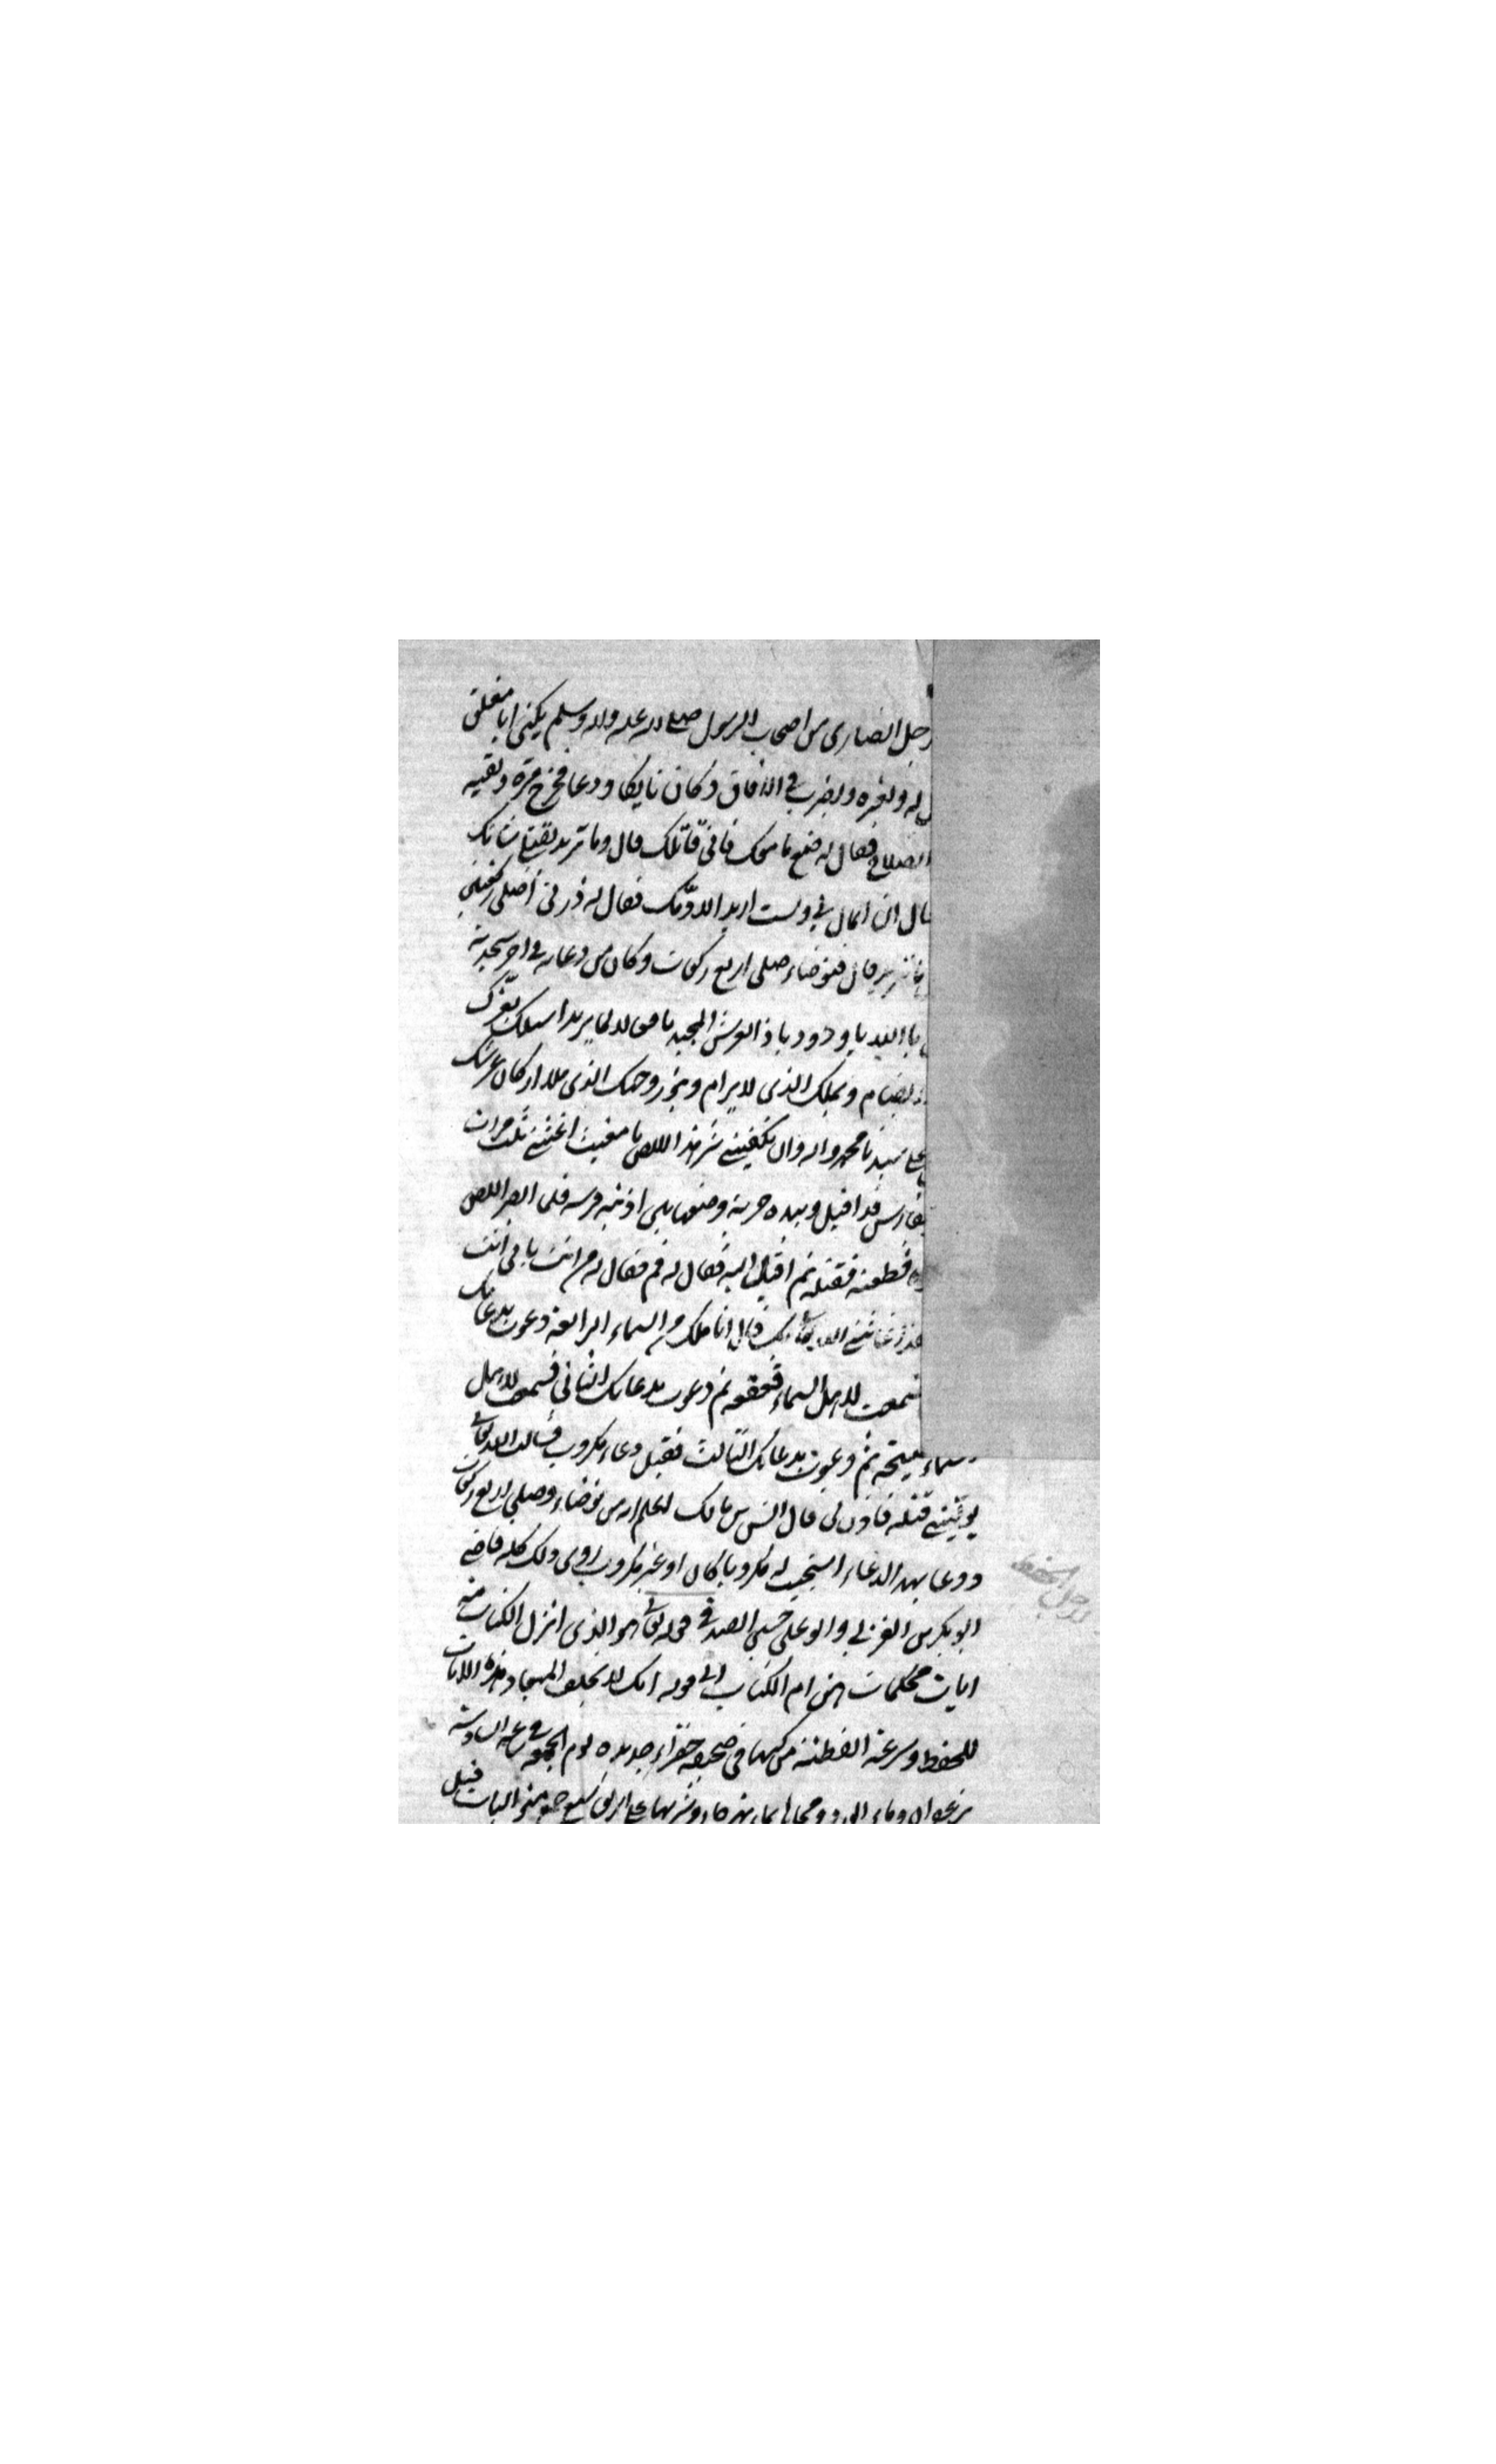 رجل انصاري من اصحاب الرسول صلى الله عليه واله وسلم يكنى ابا مغلق
له ولغيره ويضرب في الافاق وكان ناسكا ورعا فخرج مرة ولقيه
السلاح فقال له ضع ما معك فاني قاتلك قال وما تريد بقتلي شانك
قال ان المال لي ولست اريد الا دمك فقال له ذرني اصلي
قال فتوضاء وصلى اربع ركعات وكان من دعائه في اخر سجدته
يا ودود يا ذا العرش المجيد يا فعالا لما يريد اسئلك بعزك
وبملكك الذي لا يرام وبنور وجهك الذي ملاء اركان عرشك
على سيدنا محمد واله وان تكفيني شر هذا اللص يا مغيث اغثني ثلث مرات
بفارس قد اقبل وبيده حربة وضعها بين اذني فرسه فلما ابصر اللص
فطعنه فقتله ثم اقبل اليه فقال له قم فقال له من انت بابي انت
اغاثني الله تعالى بك قال انا ملك من السماء الرابعة دعوت بدعائك
سمعت لاهل السماء قعقعة ثم دعوت بدعائك الثاني فسمعت لاهل
السماء ضجة ثم دعوت بدعائك الثالث فقيل دعاء مكروب فسالت الله تعالى
يوليني قتله فاذن لي قال انس بن مالك اعلم انه من توضاء وصلى اربع ركعات
ودعا بهذا الدعاء استجيب له مكروبا كان او غير مكروب روى ذلك كله قاضي
ابو بكر بن العربي وابو علي الصدفي قوله تعالى هو الذي انزل الكتاب منه
ايات محكمات هن ام الكتاب الى قوله انك لا تخلف الميعاد هذه الايات
للحفظ وسرعة الفطنة من كتبها في صحيفة خضراء جديدة يوم الجمعة في ساعة السادسة
بزعفران وماء الورد ومحاها بماء وشربها على الريق سبع جمع
لاجل الحفظ